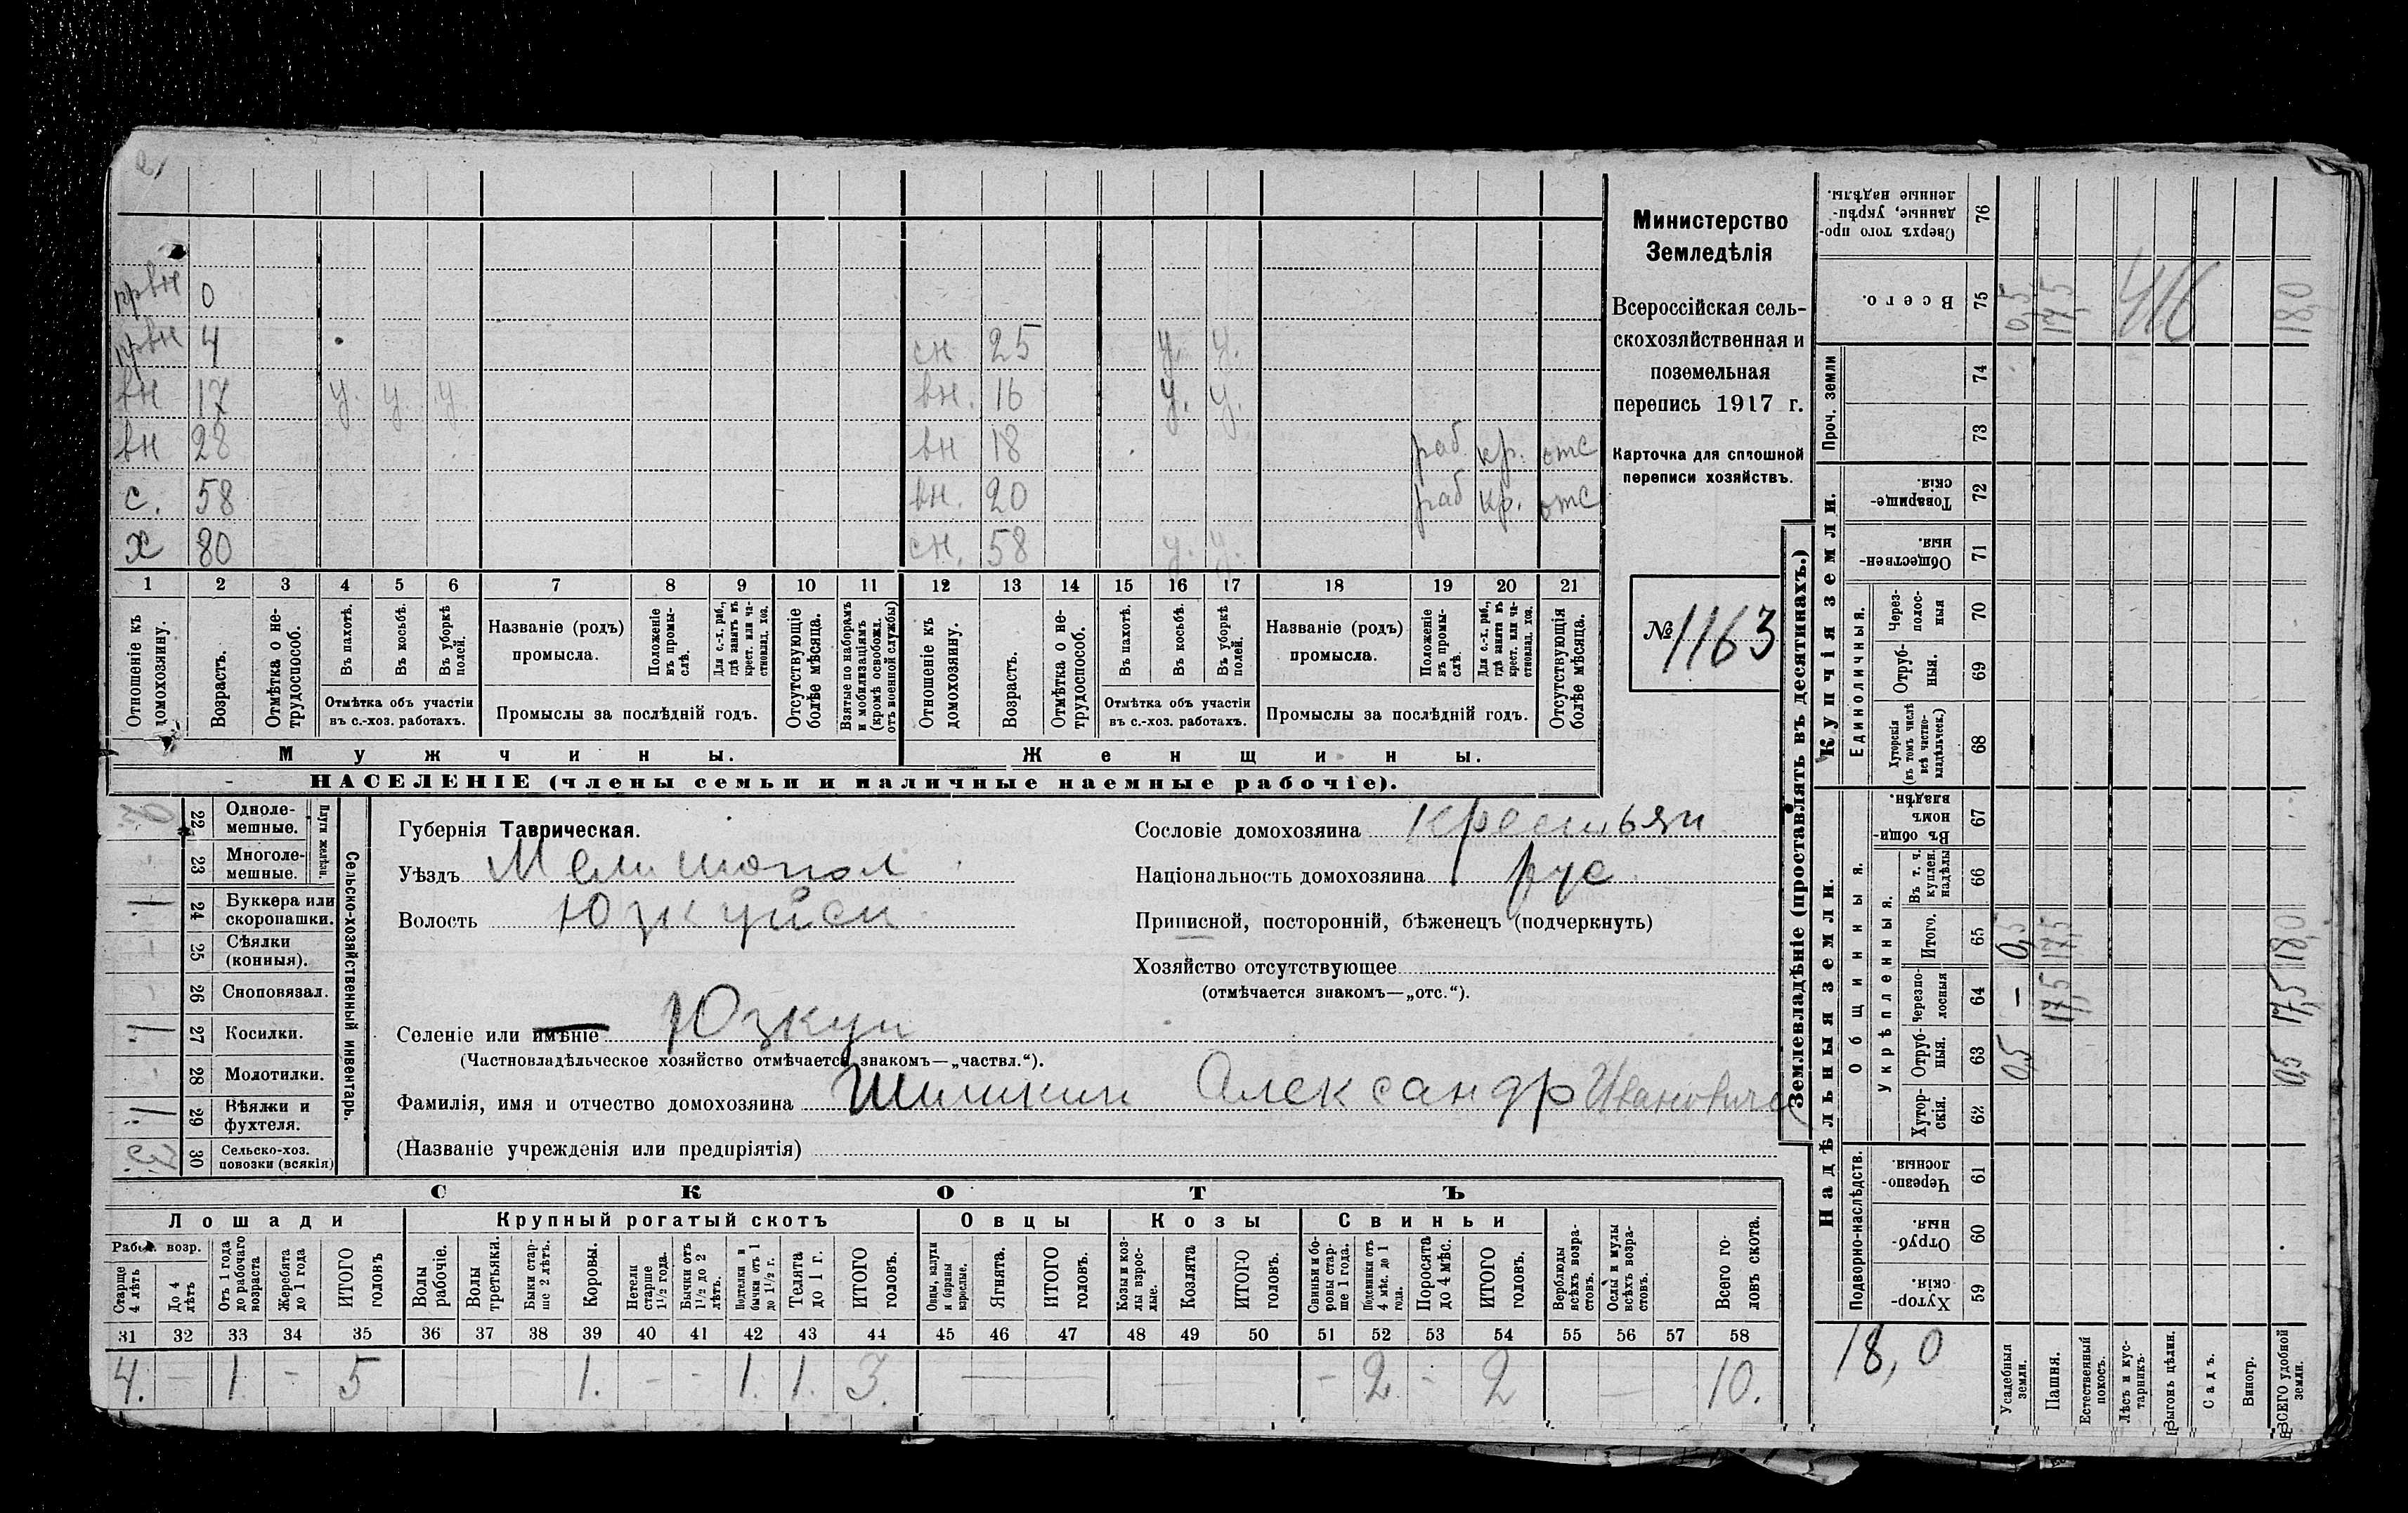 првн 0
првн 4 сн 25 у. у.
вн 17 у. у. у вн. 16 у. у.
вн 28 вн 18 раб. кр. отс
с. 58 вн. 20 раб кр. отс
х 80 сн. 58 у. у.
1 2 3 4 5 6 7 8 9 10 11 12 13 14 15 16 17 18 19 20 21
Отношеніе къ домохозяину.
Возрастъ.
Отмѣтка о не-трудоспособ.
Въ пахотѣ.
Въ косьбѣ.
Въ уборкѣ полей.
Отмѣтка объ участіи
въ с.-хоз. работахъ.
Названіе (родъ)
промысла.
Положеніе въ промы-слѣ.
Для с.-х. раб., гдѣ занятъ въ крест. или ча-стновлад. хоз.
Промыслы за послѣдній годъ.
Отсутствующіе болѣе мѣсяца.
Взятые по наборамъ и мобилизаціямъ (кромѣ освобожд. отъ военной службы)
Отношеніе къ домохозяину.
Возрастъ.
Отмѣтка о не-трудоспособ.
Въ пахотѣ.
Въ косьбѣ.
Въ уборкѣ полей.
Отмѣтка объ участіи
въ с.-хоз. работахъ.
Названіе (родъ)
промысла.
Положеніе въ промы-слѣ.
Для с.-х. раб., гдѣ занята въ крест. или ча-стновлад. хоз.
Промыслы за послѣдній годъ.
Отсутствующія болѣе мѣсяца.
Мужчины. Женщины.
НАСЕЛЕНІЕ (члены семьи и наличные наемные рабочіе).
Министерство
Земледѣлія
Всероссійская сель-
скохозяйственная и
поземельная
перепись 1917 г.
Карточка для сплошной
переписи хозяйствъ.
№ 1163
Сельско-хозяйственный инвентарь.
Плуги желѣзн.
22 Одноле-мешные.
23 Многоле-мешные.
1 24 Буккера или скоропашки.
- 25 Сѣялки (конныя).
- 26 Сноповязал.
1 27 Косилки.
- 28 Молотилки.
1 29 Вѣялки и фухтеля.
3. 30 Сельско-хоз. повозки (всякія)
Губернія Таврическая.
Уѣздъ Мелитопол
Волость Юзкуйси
Селеніе или имѣніе Юзкуи
(Частновладѣльческое хозяйство отмѣчается знакомъ—„частвл.“).
Фамилія, имя и отчество домохозяина Шишкин Александр Иванович
(Названіе учрежденія или предпріятія)
Сословіе домохозяина крестьян
Національность домохозяина рус.
Приписной, посторонній, бѣженецъ (подчеркнуть)
Хозяйство отсутствующее
(отмѣчается знакомъ—„отс.“).
СКОТЪ
Лошади Крупный рогатый скотъ Овцы Козы Свиньи
Рабоч. возр.
Старше 4 лѣтъ
До 4 лѣтъ
Отъ 1 года до рабочаго возраста
Жеребята до 1 года
ИТОГО головъ
Волы рабочіе.
Волы третьяки.
Быки стар-ше 2 лѣтъ.
Коровы.
Нетели старше 1½ года.
Бычки отъ 1½ до 2 лѣтъ.
Подтелки и бычки отъ 1 до 1½ г.
Телята до 1 г.
ИТОГО головъ.
Овцы, валухи и бараны взрослые.
Ягнята.
ИТОГО головъ.
Козы и коз-лы взрос-лые.
Козлята
ИТОГО головъ.
Свиньи и бо-ровы стар-ше 1 года.
Подсвинки отъ 4 мѣс. до 1 года.
Поросята до 4 мѣс.
ИТОГО головъ.
Верблюды всѣхъ возра-стовъ.
Ослы и мулы всѣхъ возра-стовъ.
Всего го-ловъ скота.
31 32 33 34 35 36 37 38 39 40 41 42 43 44 45 46 47 48 49 50 51 52 53 54 55 56 57 58
4. - 1 - 5 - - - 1. - - 1. 1. 3. - - - - 2. - 2 - 10.
Землевладѣніе (проставлять въ десятинахъ.)
Надѣльныя земли. Купчія земли. Проч. земли
Подворно-наслѣдств. Общинныя. Единоличныя.
Укрѣпленныя.
Хутор-скія. 59
Отруб-ныя. 60
Черезпо-лосныя. 61
Хутор-скія. 62
Отруб-ныя. 63
Черезпо-лосныя 64
Итого. 65
Въ т. ч. куплен. надѣлы 66
Въ общи-номъ владѣн. 67
Хуторскія (въ томъ числѣ всѣ частно-владѣльческ.) 68
Отруб-ныя. 69
Через-полос-ныя 70
Обществен-ныя. 71
Товарище-скія. 72
73
74
Всего. 75
Сверхъ того про-данные, укрѣп-ленные надѣлы. 76
18,0
Усадебныя земли. 0,5 - 0,5 0,5
Пашня. 17,5 17,5 17,5
Естественный покосъ.
Лѣсъ и кус-тарникъ.
Выгонъ цѣлин.
Садъ.
Виногр.
ВСЕГО удобной земли. 0,5 17,5 18,0 18,0
416